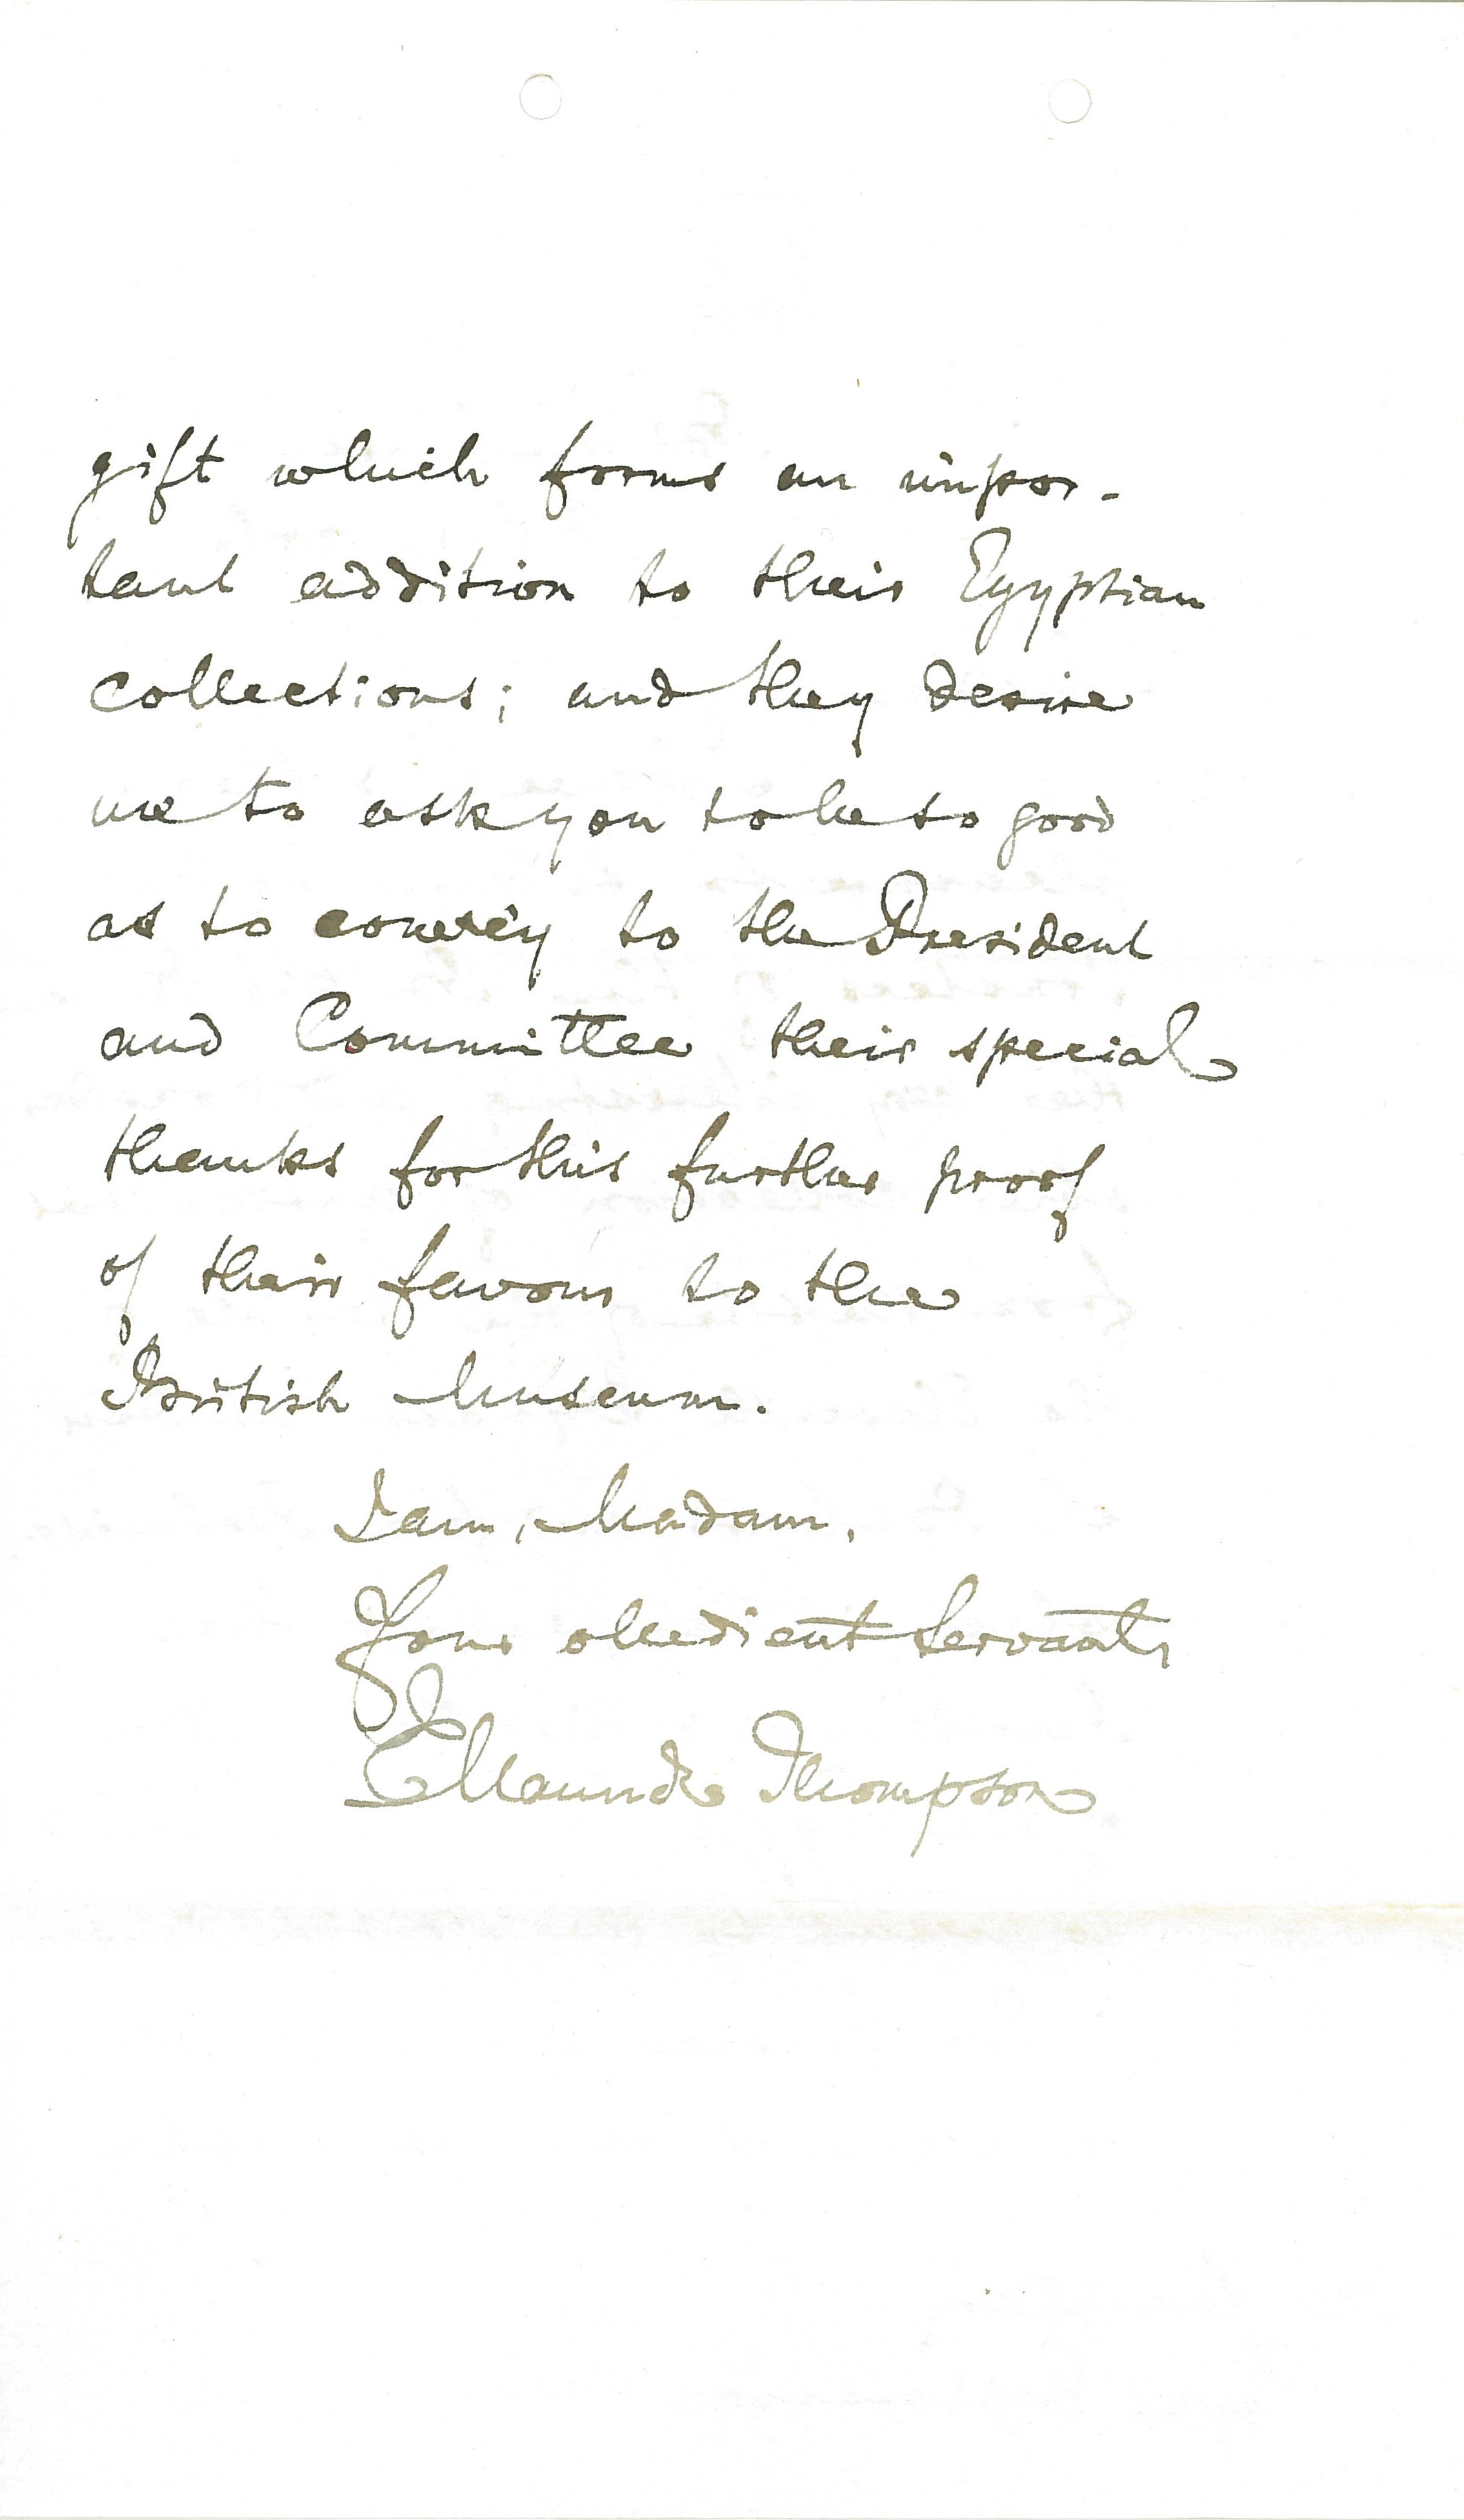 gift which forms an impor-
tant addition to their Egyptian
collections; and they desire
me to ask you to be so good
as to convey to the President
and Committee their special
thanks for this further proof
of their favour to the
British Museum.
I am, Madam,
Your obedient Servant,
E Maunde Thompson